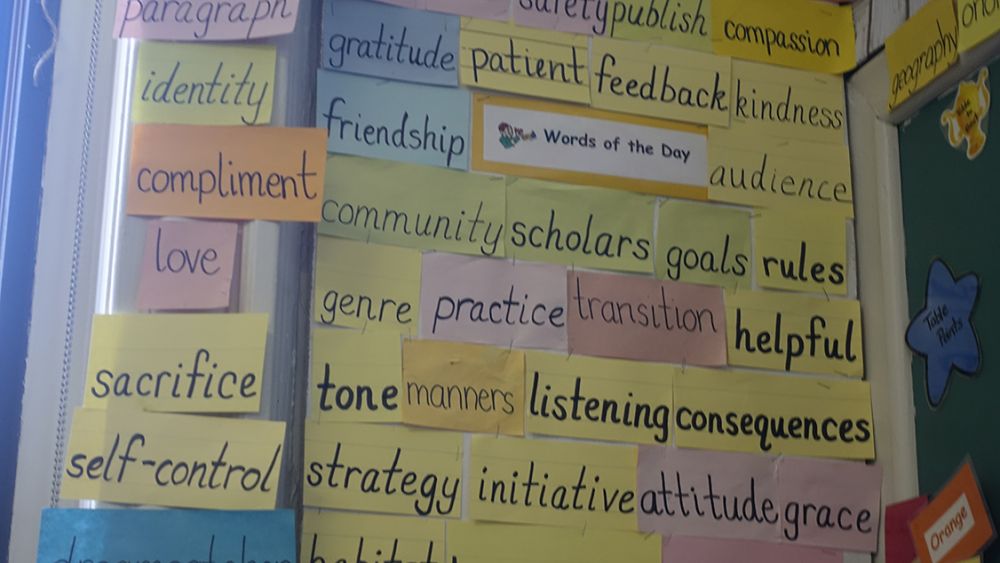 paragraph
safety publish compassion
gratitude patient feedback kindness
identity
friendship Words of the Day audience
compliment
community scholars goals rules
love
genre practice transition helpful
sacrifice
tone manners listening consequences
self-control
strategy initiative attitude grace
geography
Table Points
Orange